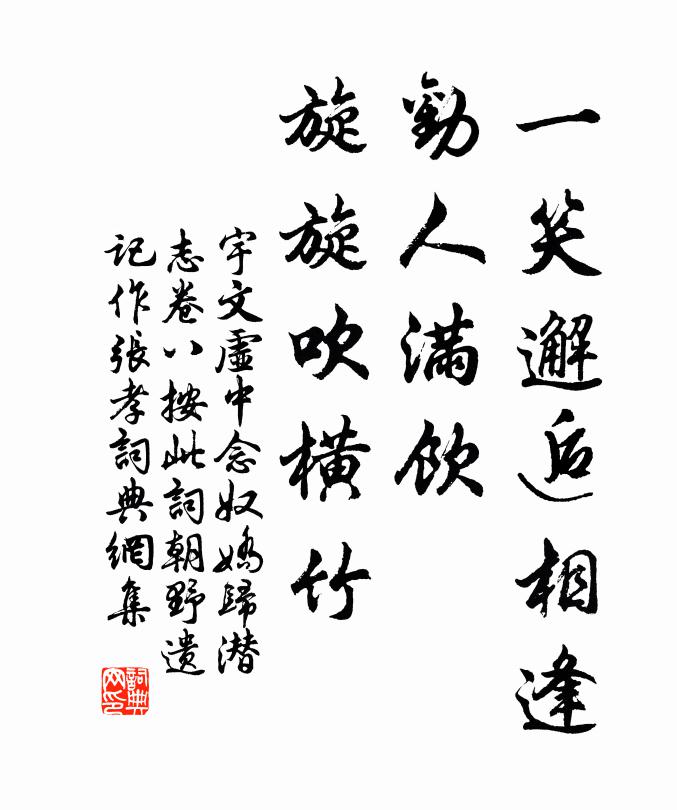 一笑邂逅相逢
勸人滿飲
旋旋吹橫竹
宇文虛中念奴嬌歸潜
志卷八按此詞朝野遺
記作張孝詞典網集
詞典
网印